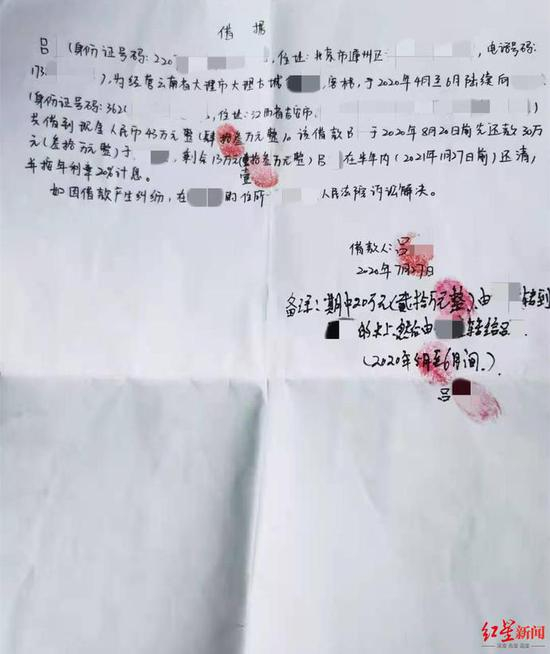 借据
吕 (身份证号码:220 ，住址:北京市通州区 ，电话号码:
173 ),为经营云南省大理市大理古城 客栈,于2020年4月至6月陆续向
(身份证号码:362( ，住址:江西省吉安市
共借到现金人民币43万元整(肆拾叁万元整)。该借款吕 于2020年8月20日前先还款30万
元(叁拾万元整)于 ,剩余13万元(壹拾叁万元整)吕 在半年内(2021年1月27日前)还清,
壹
并按年利率20%计息。
如因借款产生纠纷,在 的住所 人民法院诉讼解决。
借款人:吕
2020年7月27日
备注:其中20万元(贰拾万元整)由 转到
的卡上,然后由 转给吕
(2020年5月至6月间.)
吕
红星新闻
深度 态度 温度